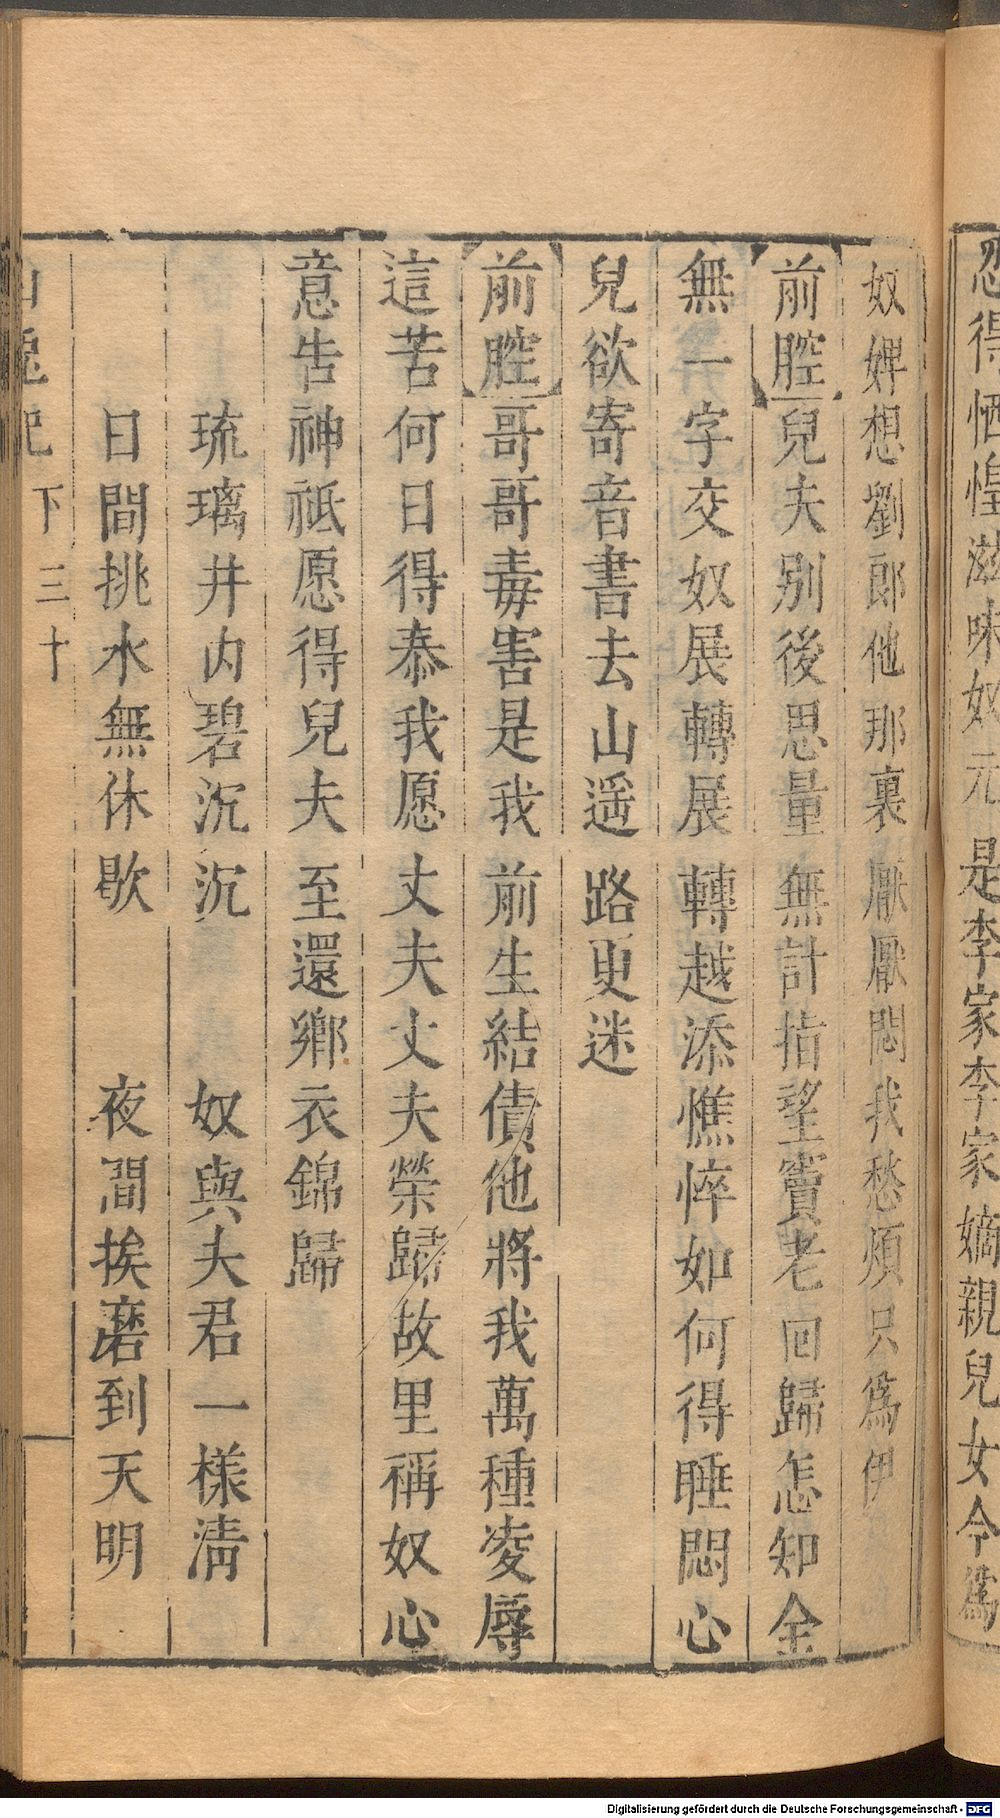 忍得恓惶滋味奴元是李家李家嫡親兒女今為
奴婢想劉郎他那裏厭厭悶我愁煩只為伊
前腔兒夫別後思量無計指望竇老回歸怎知全
無一字交奴展轉展轉越添憔悴如何得睡悶心
兒欲寄音書去山遥路更迷
前腔哥哥毒害是我前生結債他將我萬種凌辱
這苦何日得泰我愿丈夫丈夫榮歸故里稱奴心
意告神祗愿得兒夫至還鄉衣錦歸
琉璃井內碧沉沉 奴與夫君一樣清
日間挑水無休歇 夜間挨磨到天明
白兔記 下 三十
Digitalisierung gefördert durch die Deutsche Forschungsgemeinschaft - DFG